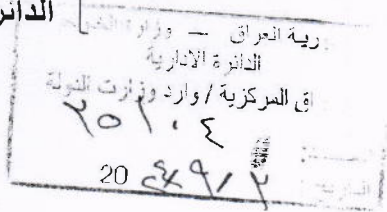 الدائر
رية العراق — وزارة الخار
الدائرة الادارية
اق المركزية / وارد وزارت الدولة
٢٥١٠٤
20